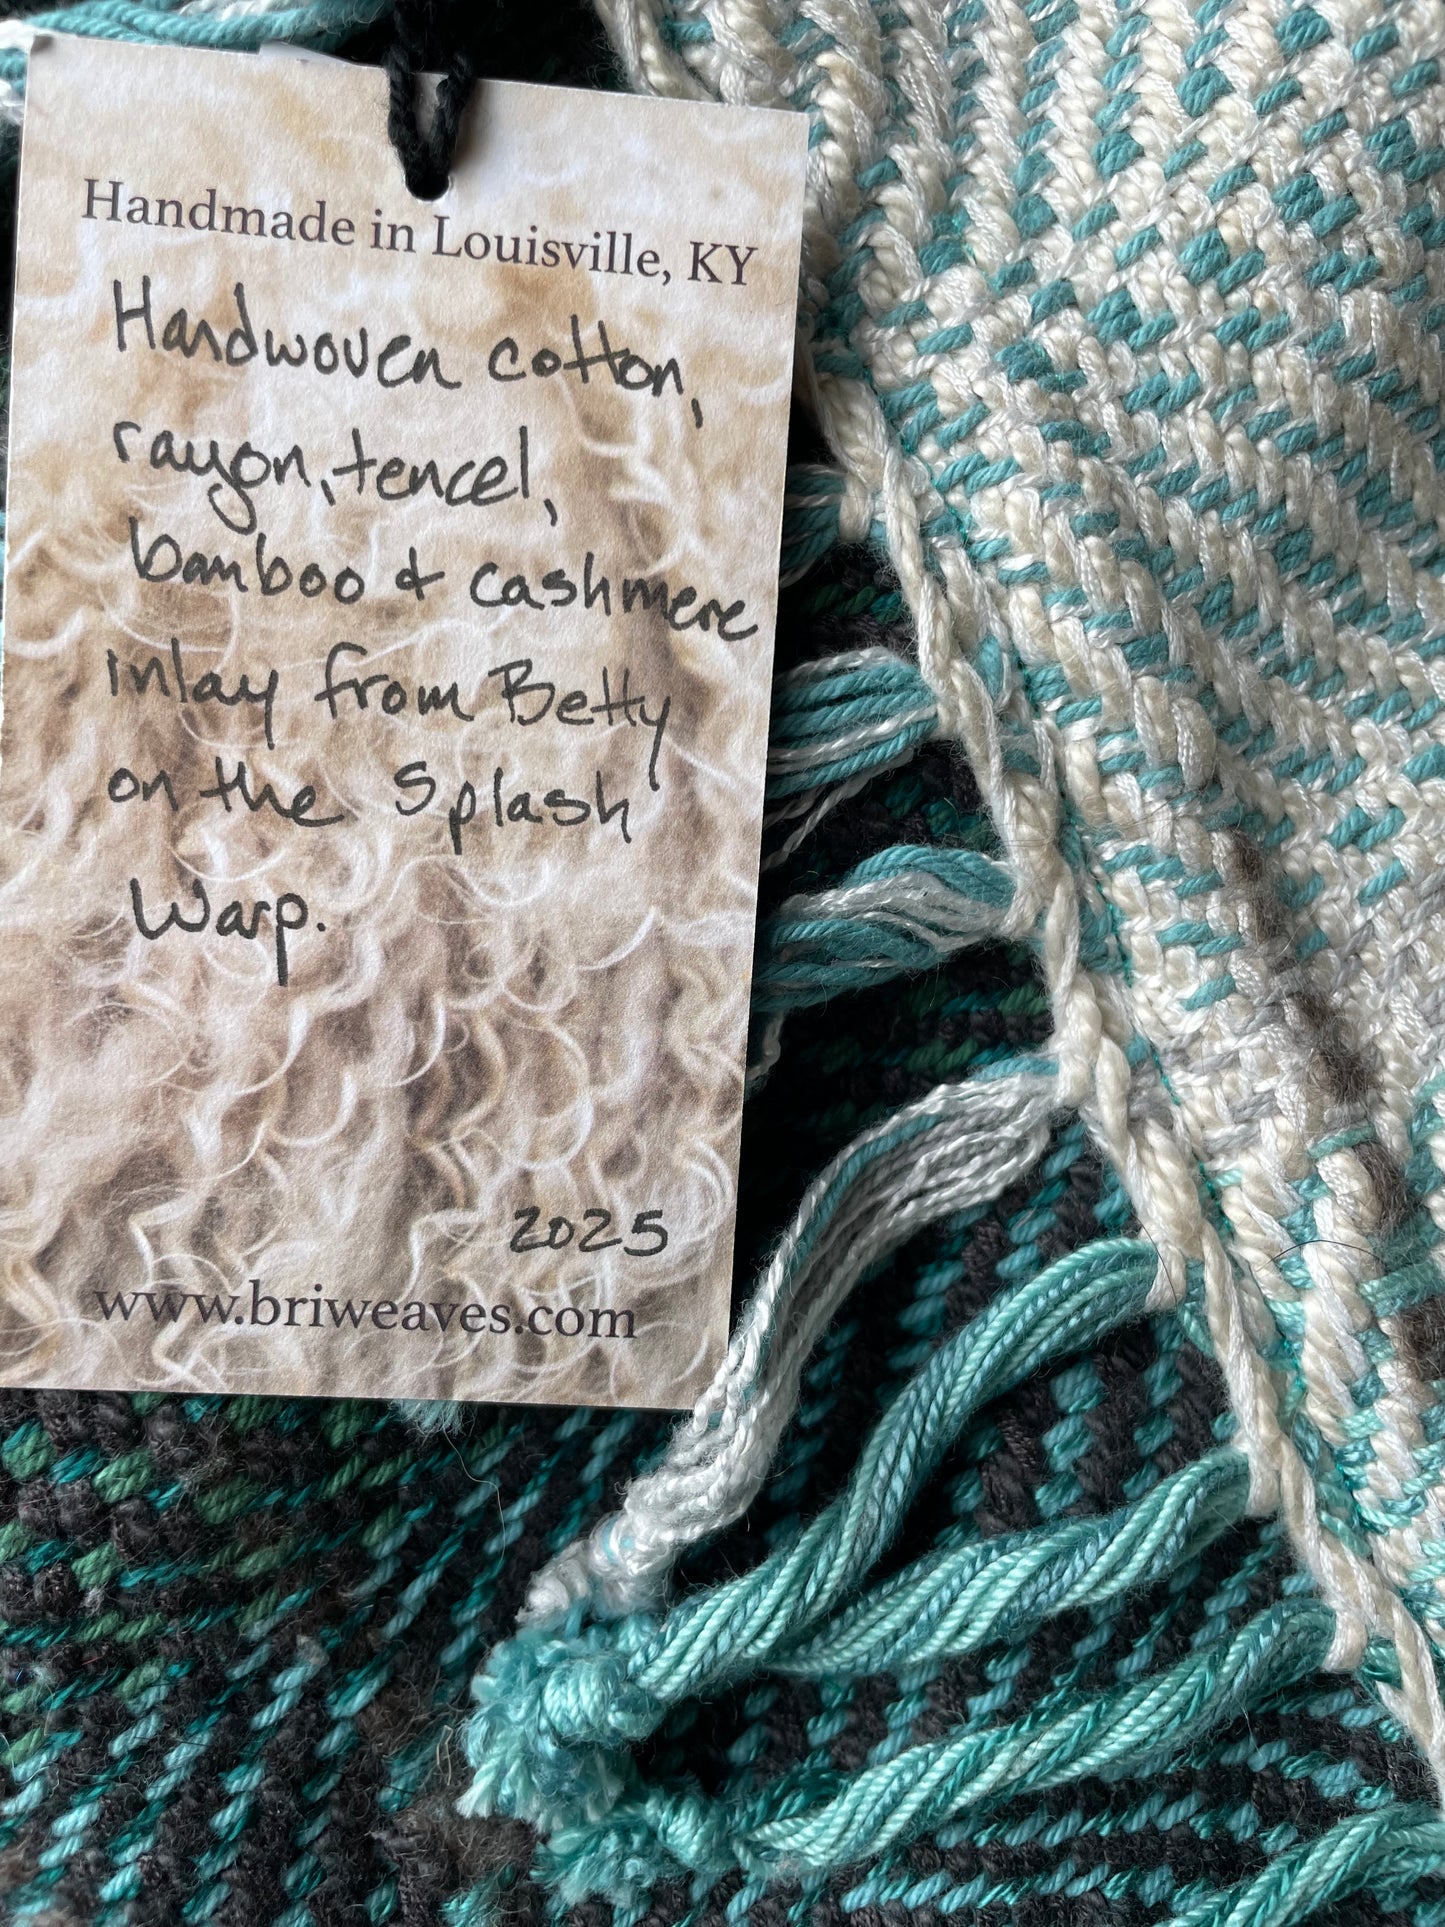 Handmade in Louisville, KY
Handwoven cotton,
rayon, tencel,
bamboo & cashmere
inlay from Betty
on the Splash
Warp.
2025
www.briweaves.com